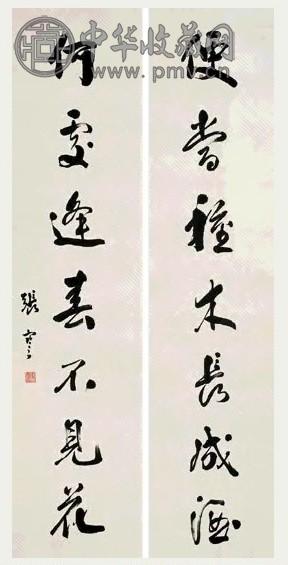 中华收藏网
www.pmv.cn
便當種木長成
何處逢春不見花
張謇